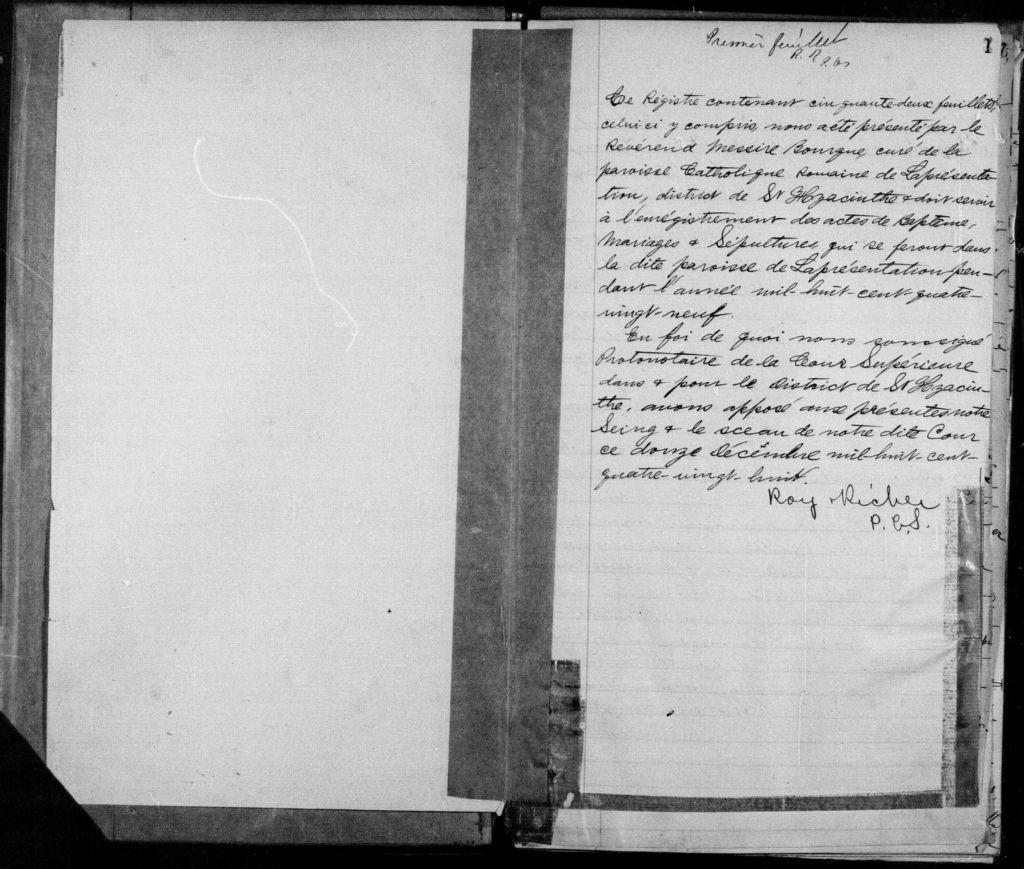 Premier feuillet
R. R. P.
1
Ce Régistre contenant cinquante-deux feuillets,
celui ci y compris, nous a été présenté par le
Révérend Messire Bourque, curé de la
paroisse Catholique Romaine de Laprésenta
tion, district de St Hyacinthe & doit servir
à l'enrégistrement des actes de Baptême,
Mariages & Sépultures, qui se feront dans
la dite paroisse de Laprésentation pen-
dant l'année mil-huit-cent-quatre-
vingt-neuf.
En foi de quoi nous soussigné
Protonotaire de la Cour Supérieure
dans & pour le District de St Hyacin-
the, avons apposé aux présentes notre
Seing & le sceau de notre dite Cour
ce douze Décembre mil-huit-cent-
quatre-vingt-huit.
Roy & Richer
P.C.S.